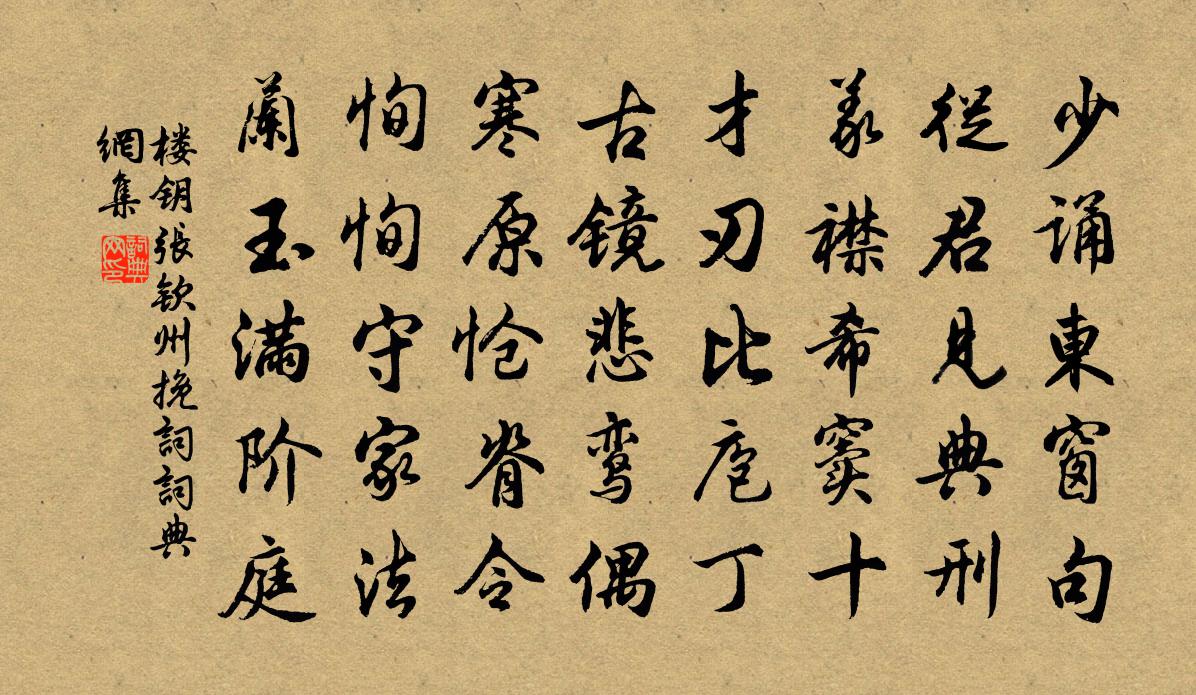 少诵東窗句
從君見典刑
義襟希窦十
才刃比庖丁
古镜悲鸾偶
寒原怆脊令
恂恂守家法
蘭玉满阶庭
楼钥张钦州挽詞詞典
網集
詞典网印